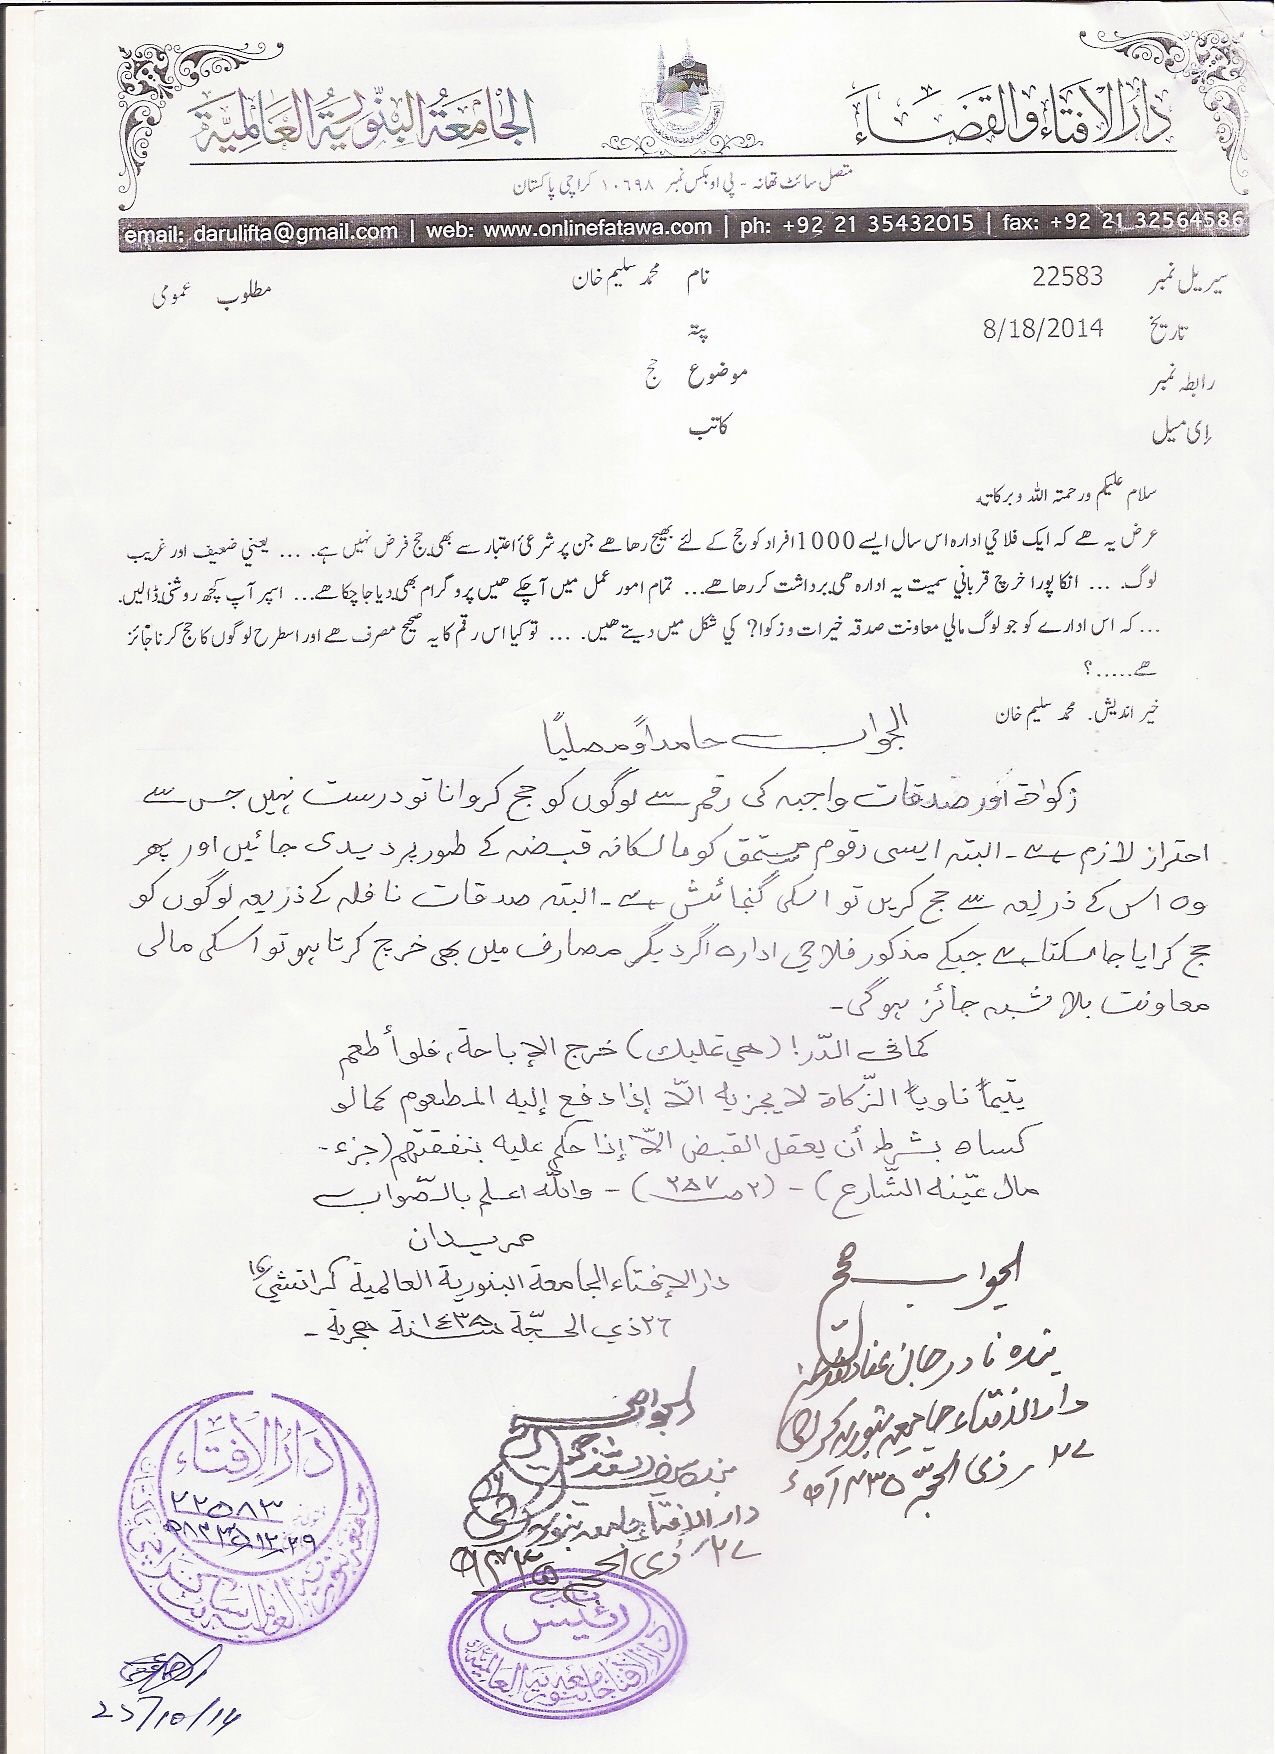 دار الافتاء والقضاء
الجامعة البنورية العالمية
متصل سائٹ تھانہ - پی او بکس نمبر ۱۰۶۹۸ کراچی پاکستان
email: darulifta@gmail.com | web: www.onlinefatawa.com | ph: +92 21 35432015 | fax: +92 21 32564586
سیریل نمبر 22583 نام محمد سلیم خان مطلوب عمومی
تاریخ 8/18/2014 پتہ
رابطہ نمبر موضوع حج
ای میل کاتب
سلام علیکم ورحمتہ اللہ وبرکاتہ
عرض یہ ھے کہ ایک فلاحي ادارہ اس سال ایسے 1000 افراد کو حج کے لئے بھیج رھا ھے جن پر شرعئ اعتبار سے بھی حج فرض نہیں ہے. ... یعني ضعیف اور غریب
لوگ. ... انکا پورا خرچ قرباني سمیت یہ ادارہ ھی برداشت کر رھا ھے... تمام امور عمل میں آچکے ھیں پروگرام بھی دیا جا چکا ھے... اسپر آپ کچھ روشنی ڈالیں.
... کہ اس ادارے کو جو لوگ مالي معاونت صدقہ خیرات و زکوا? کي شکل میں دیتے ھیں. ... تو کیا اس رقم کا یہ صحیح مصرف ھے اور اسطرح لوگوں کا حج کرنا جائز
ھے.....؟
خیر اندیش. محمد سلیم خان
الجواب حامداً ومصلیاً
زکوٰۃ اور صدقات واجبہ کی رقم سے لوگوں کو حج کروانا تو درست نہیں جس سے
احتراز لازم ہے۔ البتہ ایسی رقوم مستحق کو مالکانہ قبضہ کے طور پر دیدی جائیں اور پھر
وہ اس کے ذریعہ سے حج کریں تو اسکی گنجائش ہے۔ البتہ صدقات نافلہ کے ذریعہ لوگوں کو
حج کرایا جا سکتا ہے جبکہ مذکور فلاحی ادارہ اگر دیگر مصارف میں بھی خرچ کرتا ہو تو اسکی مالی
معاونت بلا شبہ جائز ہوگی۔
کما فی الدّر! (هي تمليك) خرج الإباحة، فلو أطعم
يتيماً ناوياً الزّكاة لا يجزيه الّا إذا دفع إليه المطعوم كما لو
كساه بشرط أن يعقل القبض الّا إذا حكم عليه بنفقتهم (جزء-
مال عيّنه الشّارع) - (۲ صـ ۲۵۷) - والله اعلم بالصّواب
دار الإفتاء الجامعة البنورية العالمية كراتشي ۱۶
۲۶ ذي الحجّة ۱۴۳۵ سنة هجرية۔
الجواب صحیح
بندہ نادر جان
دار الافتاء جامعہ بنوریہ کراچی
۲۷ ذی الحجہ ۱۴۳۵ھ
الجواب صحیح
دار الافتاء جامعہ بنوریہ
۲۷ ذی الحجہ ۱۴۳۵ھ
دار الافتاء
۲۲۵۸۳
نائب
رئیس
دار الافتاء جامعہ بنوریہ العالمیہ
25/10/14